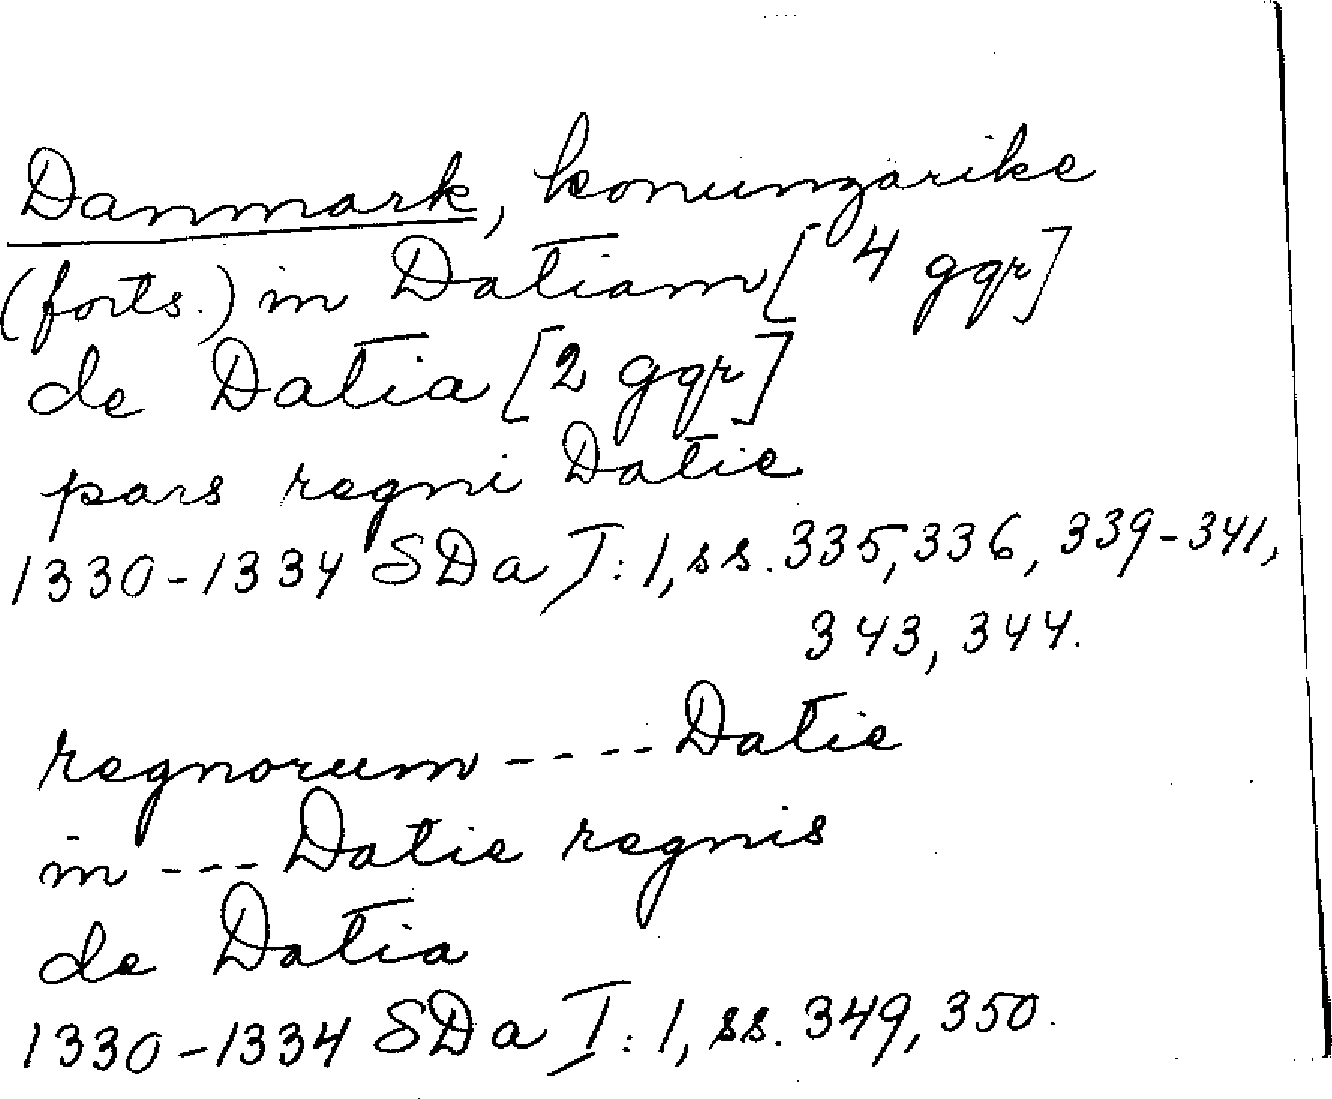 Danmark, konungarike
(forts.) in Datiam [4 ggr]
de Datia [2 ggr]
pars regni Datie
1330-1334 SDa I:1, ss. 335, 336, 339-341,
343, 344.
regnorum ---- Datie
in --- Datie regnis
de Datia
1330-1334 SDa I:1, ss. 349, 350.